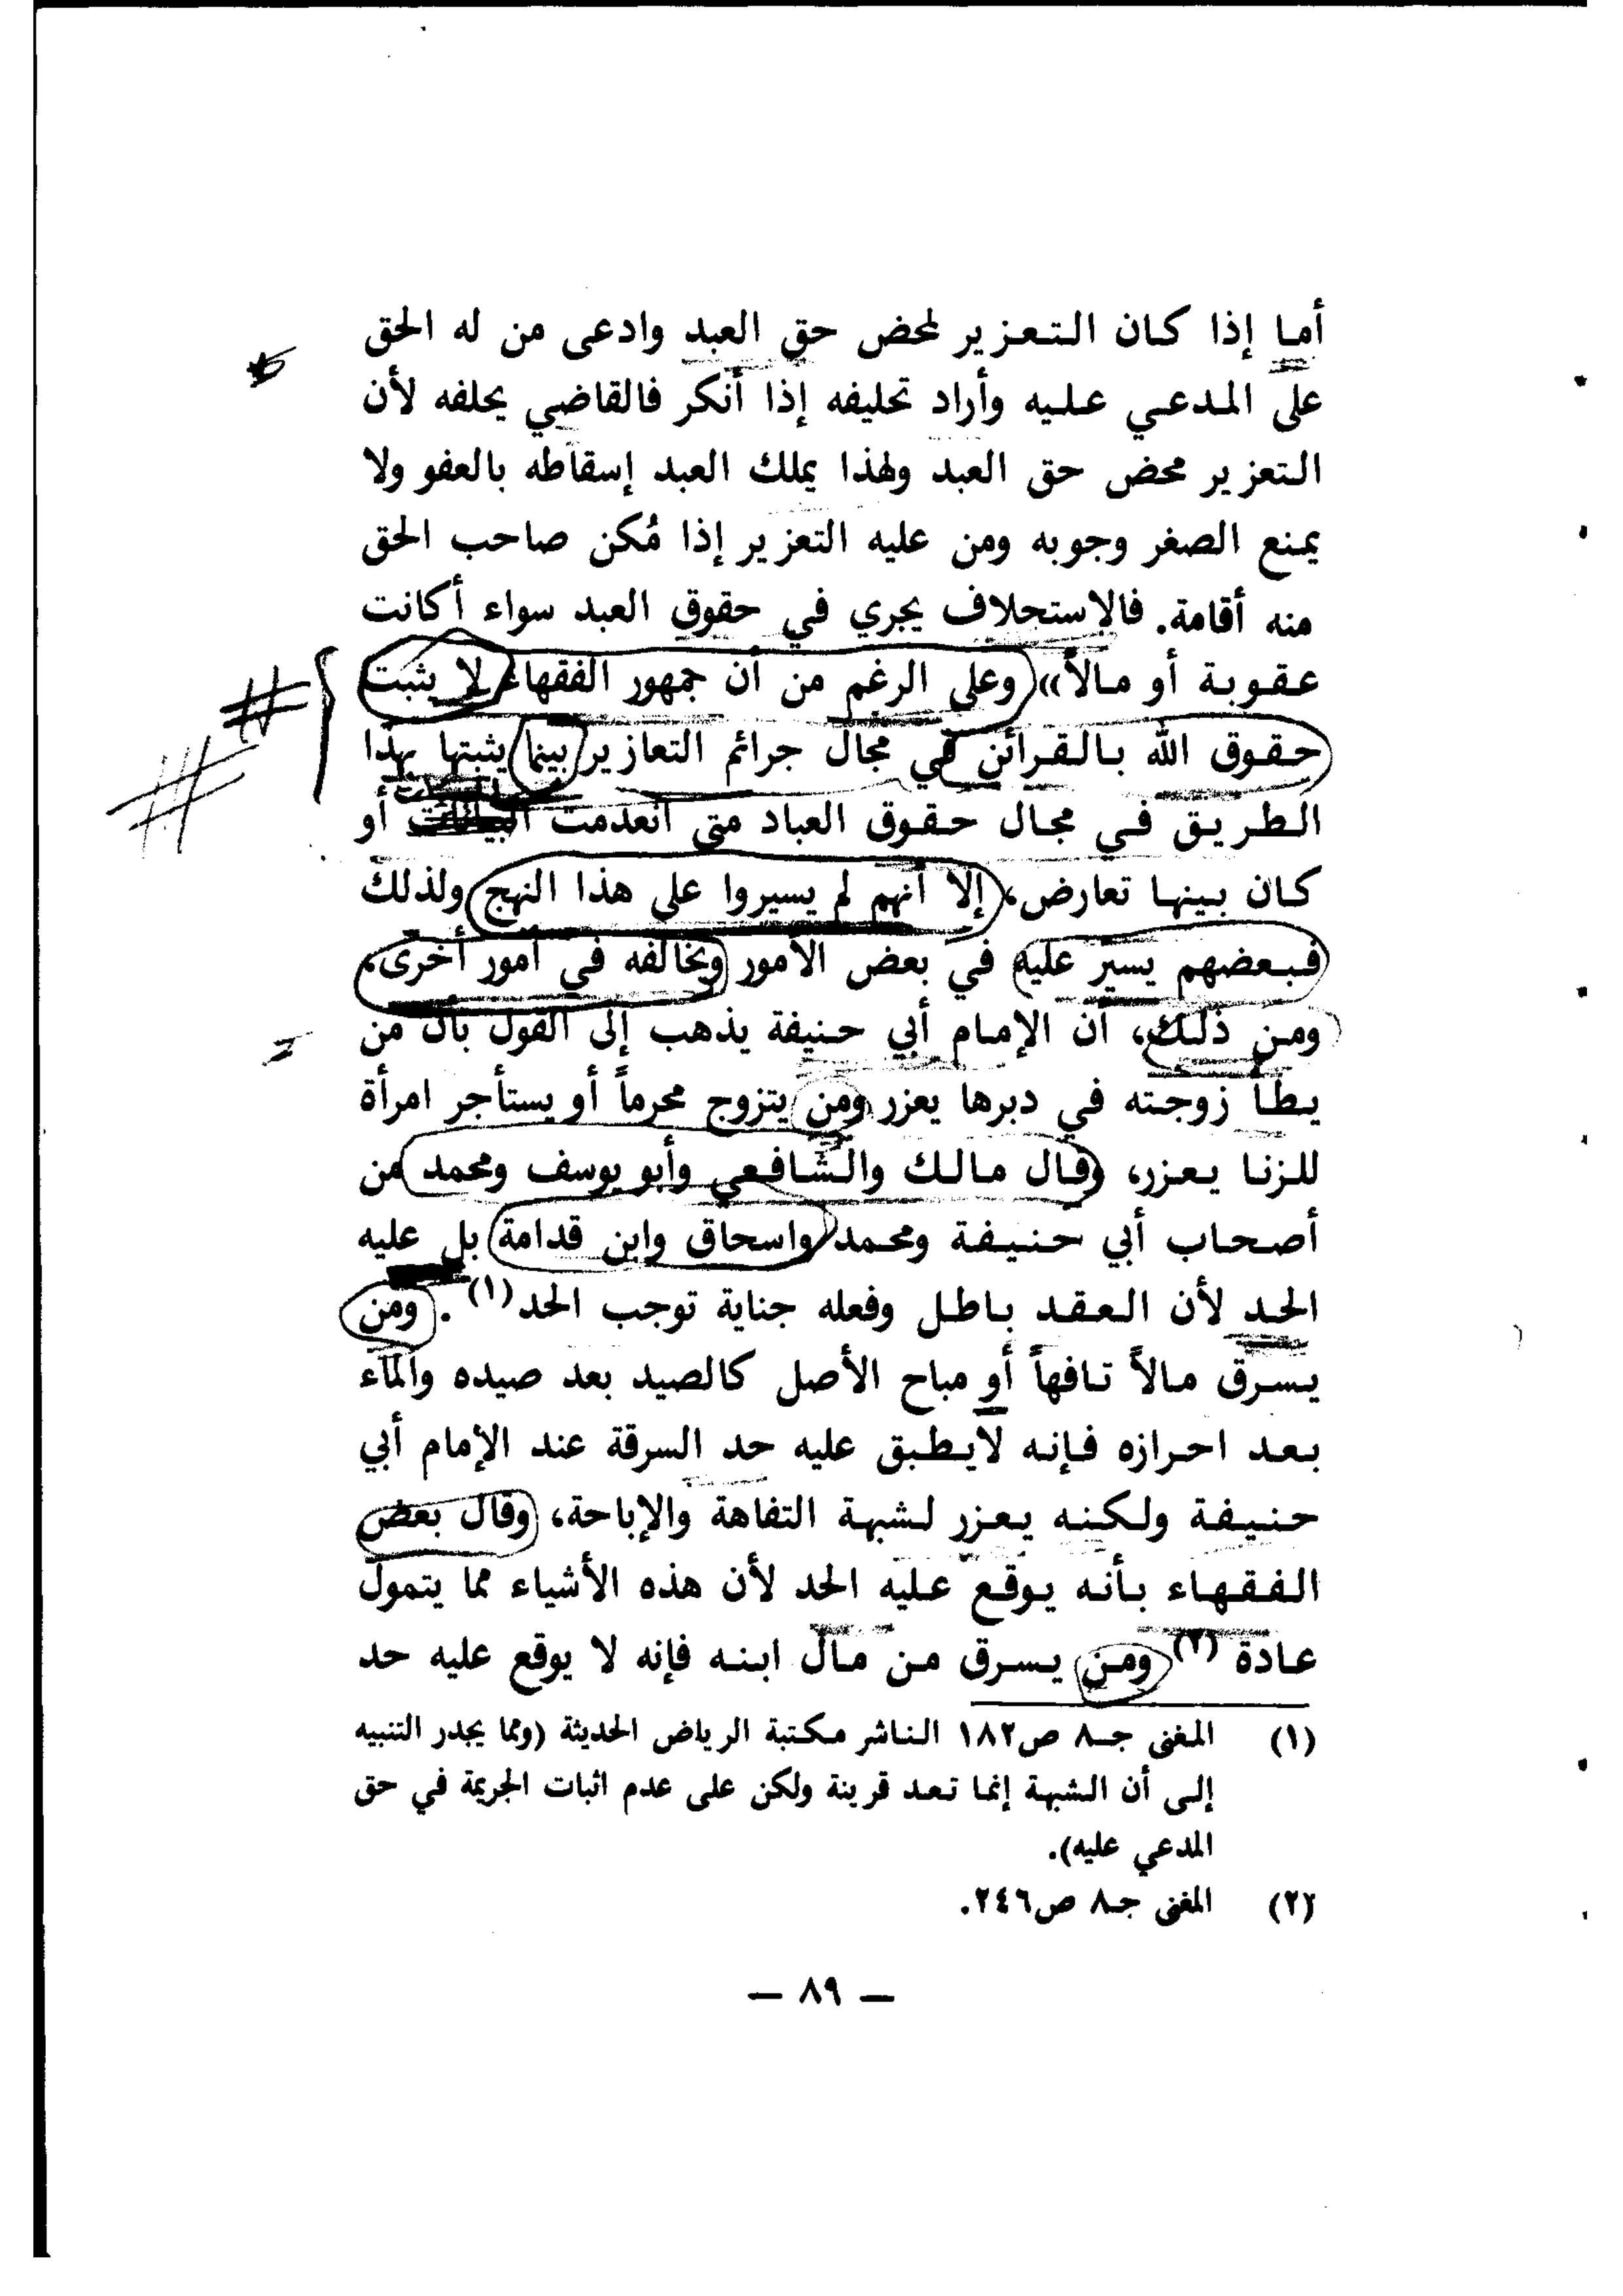 أما إذا كان التعزير لمحض حق العبد وادعى من له الحق
على المدعي عليه وأراد تحليفه إذا أنكر فالقاضي يحلفه لأن
التعزير محض حق العبد ولهذا يملك العبد إسقاطه بالعفو ولا
يمنع الصغر وجوبه ومن عليه التعزير إذا مُكن صاحب الحق
منه أقامة. فالاستحلاف يجري في حقوق العبد سواء أكانت
عقوبة أو مالاً» وعلى الرغم من أن جمهور الفقهاء لا يثبت
حقوق الله بالقرائن في مجال جرائم التعازير بينما يثبتها بهذا
الطريق في مجال حقوق العباد متى انعدمت أو
كان بينها تعارض، إلا أنهم لم يسيروا على هذا النهج ولذلك
فبعضهم يسير عليه في بعض الأمور ويخالفه في أمور أخرى،
ومن ذلك، أن الإمام أبي حنيفة يذهب إلى القول بأن من
يطأ زوجته في دبرها يعزر ومن يتزوج محرماً أو يستأجر امرأة
للزنا يعزر، وقال مالك والشافعي وأبو يوسف ومحمد من
أصحاب أبي حنيفة ومحمد واسحاق وابن قدامة بل عليه
الحد لأن العقد باطل وفعله جناية توجب الحد (١). ومن
يسرق مالاً تافهاً أو مباح الأصل كالصيد بعد صيده والماء
بعد احرازه فإنه لايطبق عليه حد السرقة عند الإمام أبي
حنيفة ولكنه يعزر لشبهة التفاهة والإباحة، وقال بعض
الفقهاء بأنه يوقع عليه الحد لأن هذه الأشياء مما يتمول
عادة (٢) ومن يسرق من مال ابنه فإنه لا يوقع عليه حد
(١) المغنى جـ٨ ص١٨٢ الناشر مكتبة الرياض الحديثة (ومما يجدر التنبيه
إلى أن الشبهة إنما تعد قرينة ولكن على عدم اثبات الجريمة في حق
المدعي عليه).
(٢) المغنى جـ٨ ص٢٤٦.
— ٨٩ —